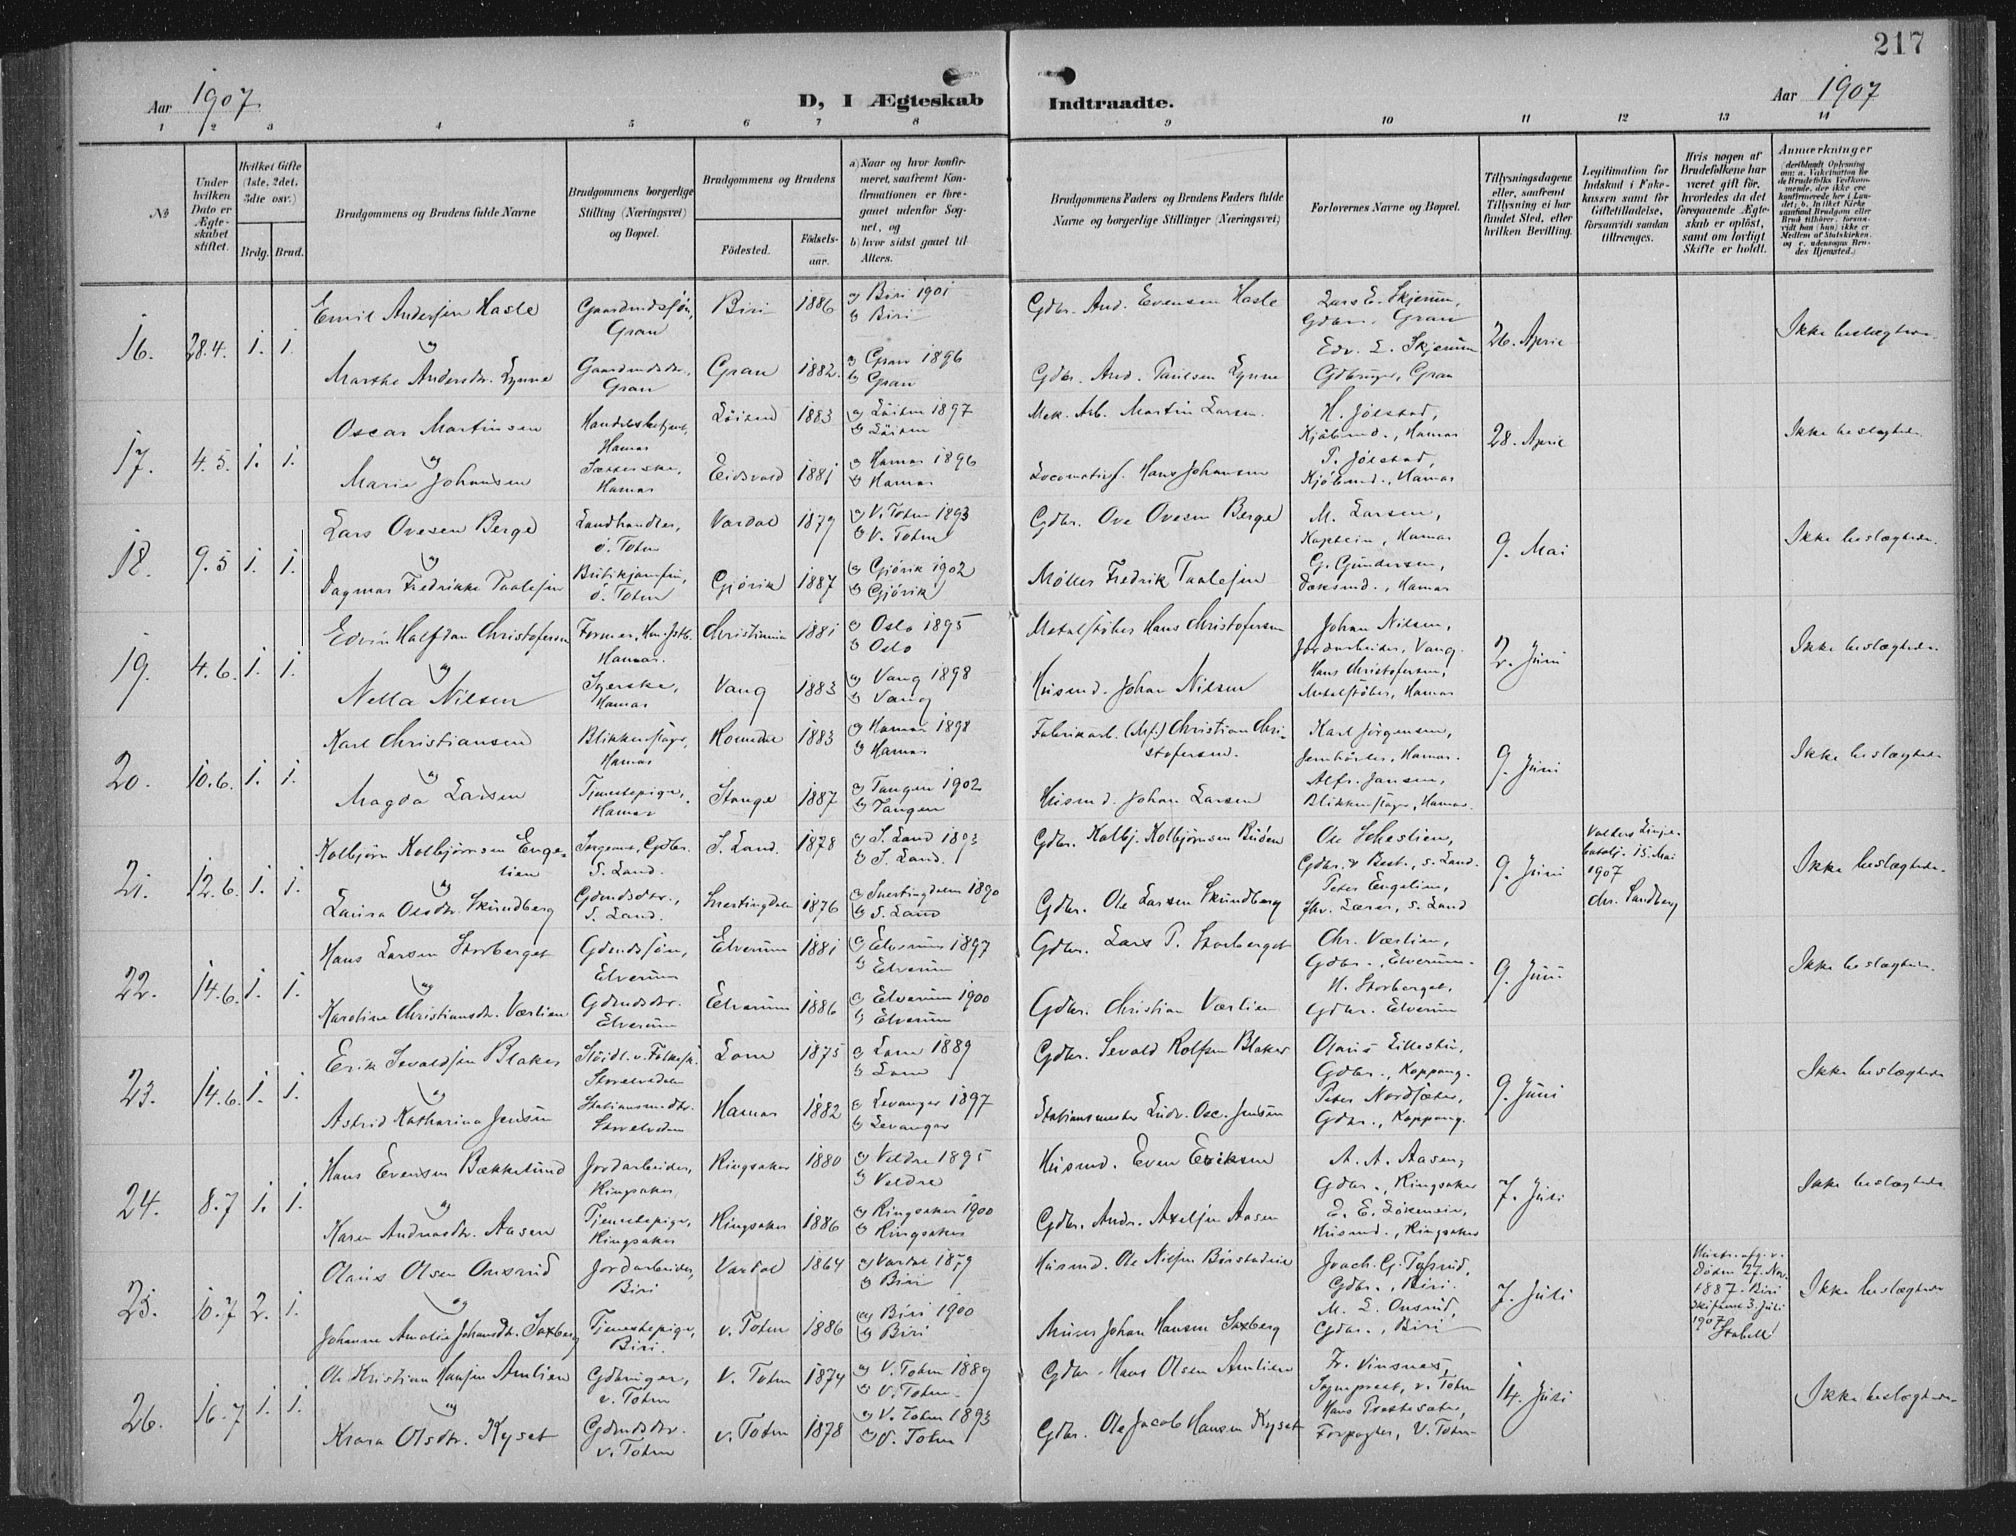 217
Aar 1907
D, I Ægteskab
Indtraadte.
Aar 1907
1 2 3 4 5 6 7 8 9 10 11 12 13 14
№
Under hvilken Dato er Ægteskabet stiftet.
Hvilket Gifte (1ste, 2det, 3die osv.)
Brdg. Brud.
Brudgommens og Brudens fulde Navne
Brudgommens borgerlige Stilling (Næringsvei) og Bopæl.
Brudgommens og Brudens
Fødested.
Fødselsaar.
a) Naar og hvor konfirmeret, saafremt Konfirmationen er foregaaet udenfor Sognet, og
b) hvor sidst gaaet til Alters.
Brudgommens Faders og Brudens Faders fulde Navne og borgerlige Stillinger (Næringsvei)
Forlovernes Navne og Bopæl.
Tillysningsdagene eller, saafremt Tillysning ei har fundet Sted, efter hvilken Bevilling.
Legitimation for Indskud i Enkekassen samt for Giftetilladelse, forsaavidt saadan tiltrænges.
Hvis nogen af Brudefolkene har været gift før, hvorledes da det foregaaende Ægteskab er opløst, samt om lovligt Skifte er holdt.
Anmærkninger
16. 28.4. 1. 1.
Emil Andersen Hasle Gaardmdssøn, Gran Biri 1886 a) Biri 1901 b) Biri Gdbr. And. Evensen Hasle Lars E. Skjerum, Gdbr. Gran 26. April Ikke beslægtede
og
Marthe Andersdtr. Lynne Gaardmdsdtr., Gran Gran 1882. a) Gran 1896 b) Gran Gdbr. And. Paulsen Lynne Edv. L. Skjerum Gdbruger, Gran
17. 4.5. 1. 1.
Oscar Martinsen Handelsbetjent, Hamar Löiten 1883 a) Löiten 1897 b) Löiten Mek. Arb. Martin Larsen. H. Jölstad, Kjöbmd., Hamar 28. April Ikke beslægtede
og
Marie Johansen Hamar Eidsvold 1881 a) Hamar 1896 b) Hamar Locomotivf. Hans Johansen P. Jölstad, Kjöbmd., Hamar
18. 9.5 1. 1.
Lars Ovesen Berge Landhandler, ö. Toten Vardal 1879 a) V. Toten 1893 b) V. Toten Gdbr. Ove Ovesen Berge M. Larsen, Hamar 9. Mai Ikke beslægtede.
og
Dagmar Fredrikke Paalesen ö. Toten Gjövik 1887 a) Gjövik 1902 b) Gjövik Möller Fredrik Paalesen G. Gundersen, Hamar
19. 4.6. 1. 1.
Edvin Halfdan Christofersen Former, Hamar. Christiania 1881 a) Oslo 1895 b) Oslo Metalstöber Hans Christofersen Johan Nilsen, Jordarbeider, Vang. 2. Juni Ikke beslægtede
og
Nella Nilsen Syerske, Hamar Vang 1883 a) Vang 1898 b) Vang Husmd. Johan Nilsen Hans Christofersen, Metalstöber, Hamar
20. 10.6. 1. 1.
Karl Christiansen Blikkenslager, Hamar Romedal 1883 a) Hamar 1898 b) Hamar Fabrikarb. Christian Christofersen. Karl Jörgensen, Hamar. 9. Juni Ikke beslægtede
og
Magda Larsen Tjenestepige, Hamar Stange 1887 a) Tangen 1902 b) Tangen Husmd. Johan Larsen Alfr. Jansen, Blikkenslager, Hamar.
21. 12.6. 1. 1.
Kolbjörn Kolbjörnsen Engelien Sergeant, Gdbr. S. Land. S. Land. 1878 a) S. Land 1893 b) S. Land. Gdbr. Kolbj. Kolbjörnsen Ruden Ole Sehestien, Gdbr., S. Land. 9. Juni 15. Mai 1907 Chr. Sandberg Ikke beslægtede.
og
Laura Olsdtr. Skundberg Gdmdsdtr., S. Land. Snertingdalen 1876 a) Snertingdalen 1890 b) S. Land Gdbr. Ole Larsen Skundberg Peter Engelien, fhv. Lærer, S. Land
22. 14.6. 1. 1.
Hans Larsen Storberget Gdmdssön, Elverum Elverum 1881 a) Elverum 1897 b) Elverum Gdbr. Lars P. Storberget Chr. Værlien, Gdbr., Elverum. 9. Juni Ikke beslægtede.
og
Karoline Christiansdtr. Værlien Gdmdsdtr. Elverum Elverum 1886 a) Elverum 1900 b) Elverum Gdbr. Christian Værlien H. Storberget, Gdbr. Elverum
23. 14.6. 1. 1.
Erik Sevaldsen Blaker Storelvedalen Lom 1875 a) Lom 1889 b) Lom Gdbr. Sevald Rolfsen Blaker Olaus Lillestu, Gdbr., Koppang. 9. Juni Ikke beslægtede
og
Astrid Katharina Jensen Stationsmdtr. Storelvedalen Hamar 1882 a) Levanger 1897 b) Levanger Stationsmester Ludv. Osc. Jensen Peter Nordsæter, Gdbr., Koppang.
24. 8.7 1. 1.
Hans Evensen Bækkelund Jordarbeider, Ringsaker Ringsaker 1880 a) Veldre 1895 b) Veldre Husmd. Even Eriksen A. A. Aasen, Gdbr., Ringsaker 7. Juli Ikke beslægtede
og
Karen Andreasdtr. Aasen Tjenestepige, Ringsaker Ringsaker 1886 a) Ringsaker 1900 b) Ringsaker Gdbr. Andr. Axelsen Aasen Husmd., Ringsaker
25. 10.7 2. 1.
Olaus Olsen Onsrud Jordarbeider, Biri Vardal 1864 a) Vardal 1879 b) Biri Husmd. Ole Nilsen Joach. G. Gdbr., Biri. 7. Juli Döden 27. Nov. 1887. Biri 3. Juli 1907 Stabell Ikke beslægtede
og
Johanne Amalie Johansdtr. Saxberg Tjenestepige, Biri. v. Toten 1886 a) Biri 1900 b) Biri Murer Johan Hansen Saxberg M. L. Onsrud, Gdbr., Biri
26. 16.7 1. 1.
Ole Kristian Hansen Amlien Gdbruger, v. Toten V. Toten 1874 a) V. Toten 1889 b) V. Toten Gdbr. Hans Olsen Amlien Fr. Vinsnes, Sogneprest, v. Toten 14. Juli Ikke beslægtede
og
Klara Olsdtr. Kyset Gdmdsdtr. v. Toten v. Toten 1878 a) V. Toten 1893 b) V. Toten Gdbr. Ole Jacob Hansen Kyset Hans Prestesæter, Forpagter, V. Toten